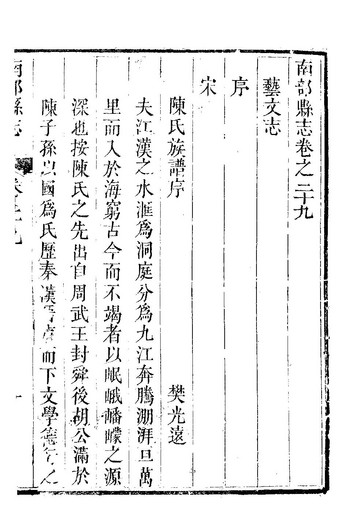 南部縣志卷之二十九
藝文志
序
宋
陳氏族譜序 樊光遠
夫江漢之水滙爲洞庭分爲九江奔騰淜湃亘萬
里而入於海窮古今而不竭者以岷峨嶓蠓之源
深也按陳氏之先出自周武王封舜後胡公滿於
陳子孫以國爲氏歷秦漢晉唐而下文學
南部縣志